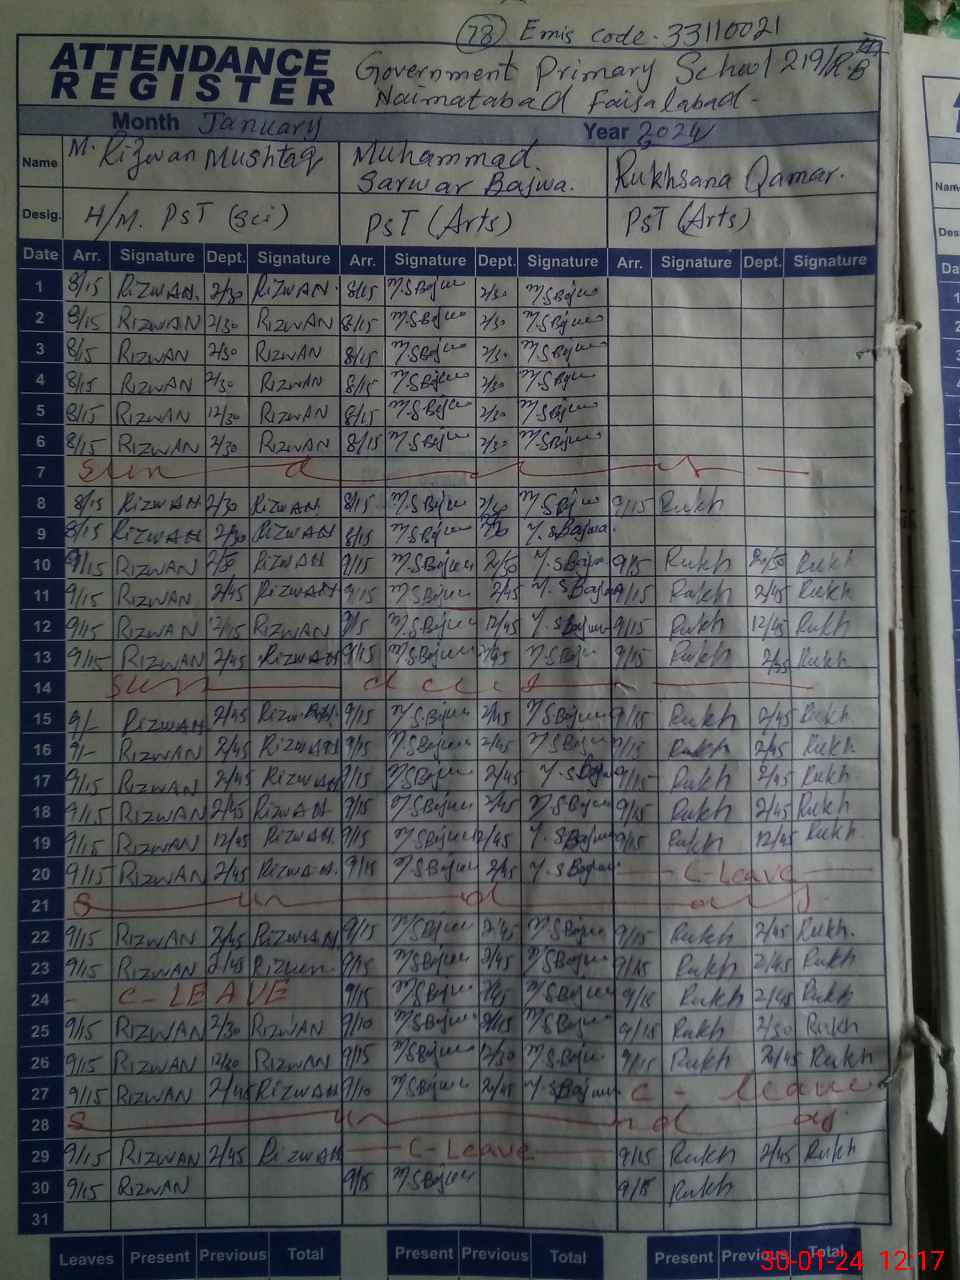 78 Emis code. 33110021
ATTENDANCE REGISTER
Government Primary School 219/RB
Naimatabad Faisalabad-
Month January Year 2024
Name M. Rizwan Mushtaq Muhammad Sarwar Bajwa. Rukhsana Qamar.
Desig. H/M. PST (Sci) PST (Arts) PST (Arts)
Date Arr. Signature Dept. Signature Arr. Signature Dept. Signature Arr. Signature Dept. Signature
1 8/15 RIZWAN. 2/30 RIZWAN. 8/15 M.SBajwa 2/30 M.SBajwa
2 8/15 RIZWAN 2/30 RIZWAN 8/15 M.SBajwa 2/30 M.SBajwa
3 8/15 RIZWAN 2/30 RIZWAN 8/15 M.SBajwa 2/30 M.SBajwa
4 8/15 RIZWAN 2/30 RIZWAN 8/15 M.SBajwa 2/30 M.SBajwa
5 8/15 RIZWAN 12/30 RIZWAN 8/15 M.SBajwa 2/30 M.SBajwa
6 8/15 RIZWAN 2/30 RIZWAN 8/15 M.SBajwa 2/30 M.SBajwa
7 Sunday
8 8/15 RIZWAN 2/30 RIZWAN 8/15 M.SBajwa 2/30 M.SBajwa 9/15 Rukh
9 8/15 RIZWAN 2/30 RIZWAN 8/15 M.SBajwa M.SBajwa.
10 9/15 RIZWAN 2/50 RIZWAN 9/15 M.SBajwa 2/50 M.SBajwa 9/15 Rukh 2/50 Rukh
11 9/15 RIZWAN 2/45 RIZWAN 9/15 M.SBajwa 2/45 M.SBajwa 9/15 Rukh 2/45 Rukh
12 9/15 RIZWAN 12/15 RIZWAN M.SBajwa 12/45 M.SBajwa 9/15 Rukh 12/45 Rukh
13 9/15 RIZWAN 2/45 RIZWAN 9/15 M.SBajwa 2/45 M.SBajwa 9/15 Rukh 2/35 Rukh
14 Sunday
15 9/- RIZWAN 2/45 RIZWAN 9/15 M.S.Bajwa 2/45 M.SBajwa 9/15 Rukh 2/45 Rukh.
16 9/- RIZWAN 2/45 RIZWAN 9/15 M.SBajwa 2/45 M.SBajwa 9/15 Rukh 2/45 Rukh.
17 9/15 RIZWAN 2/45 RIZWAN 9/15 M.SBajwa 2/45 M.SBajwa 9/15 Rukh 2/45 Rukh.
18 9/15 RIZWAN 2/45 RIZWAN 9/15 M.SBajwa 2/45 M.SBajwa 9/15 Rukh 2/45 Rukh.
19 9/15 RIZWAN 12/45 RIZWAN. 9/15 M.SBajwa 12/45 M.SBajwa 9/15 Rukh 12/45 Rukh.
20 9/15 RIZWAN 2/45 RIZWAN. 9/15 M.SBajwa 2/45 M.SBajwa C-Leave
21 Sunday
22 9/15 RIZWAN 2/45 RIZWAN 9/15 M.SBajwa 2/45 M.SBajwa 9/15 Rukh 2/45 Rukh.
23 9/15 RIZWAN 2/45 Rizwan. 9/15 M.SBajwa 2/45 M.SBajwa 9/15 Rukh 2/45 Rukh
24 - C-LEAVE 9/15 M.SBajwa 2/45 M.SBajwa 9/15 Rukh 2/45 Rukh
25 9/15 RIZWAN 2/30 RIZWAN 9/10 M.SBajwa M.SBajwa 9/15 Rukh 2/30 Rukh
26 9/15 RIZWAN 12/30 RIZWAN 9/15 M.SBajwa 12/30 M.SBajwa 9/15 Rukh Rukh
27 9/15 RIZWAN 2/45 RIZWAN 9/10 M.SBajwa 2/45 M.SBajwa C-leave
28 Sunday
29 9/15 RIZWAN 2/45 RIZWAN C-Leave 9/15 Rukh 2/45 Rukh
30 9/15 RIZWAN 9/15 M.SBajwa 9/15 Rukh
31
Leaves Present Previous Total Present Previous Total Present Previous Total
30-01-24 12:17